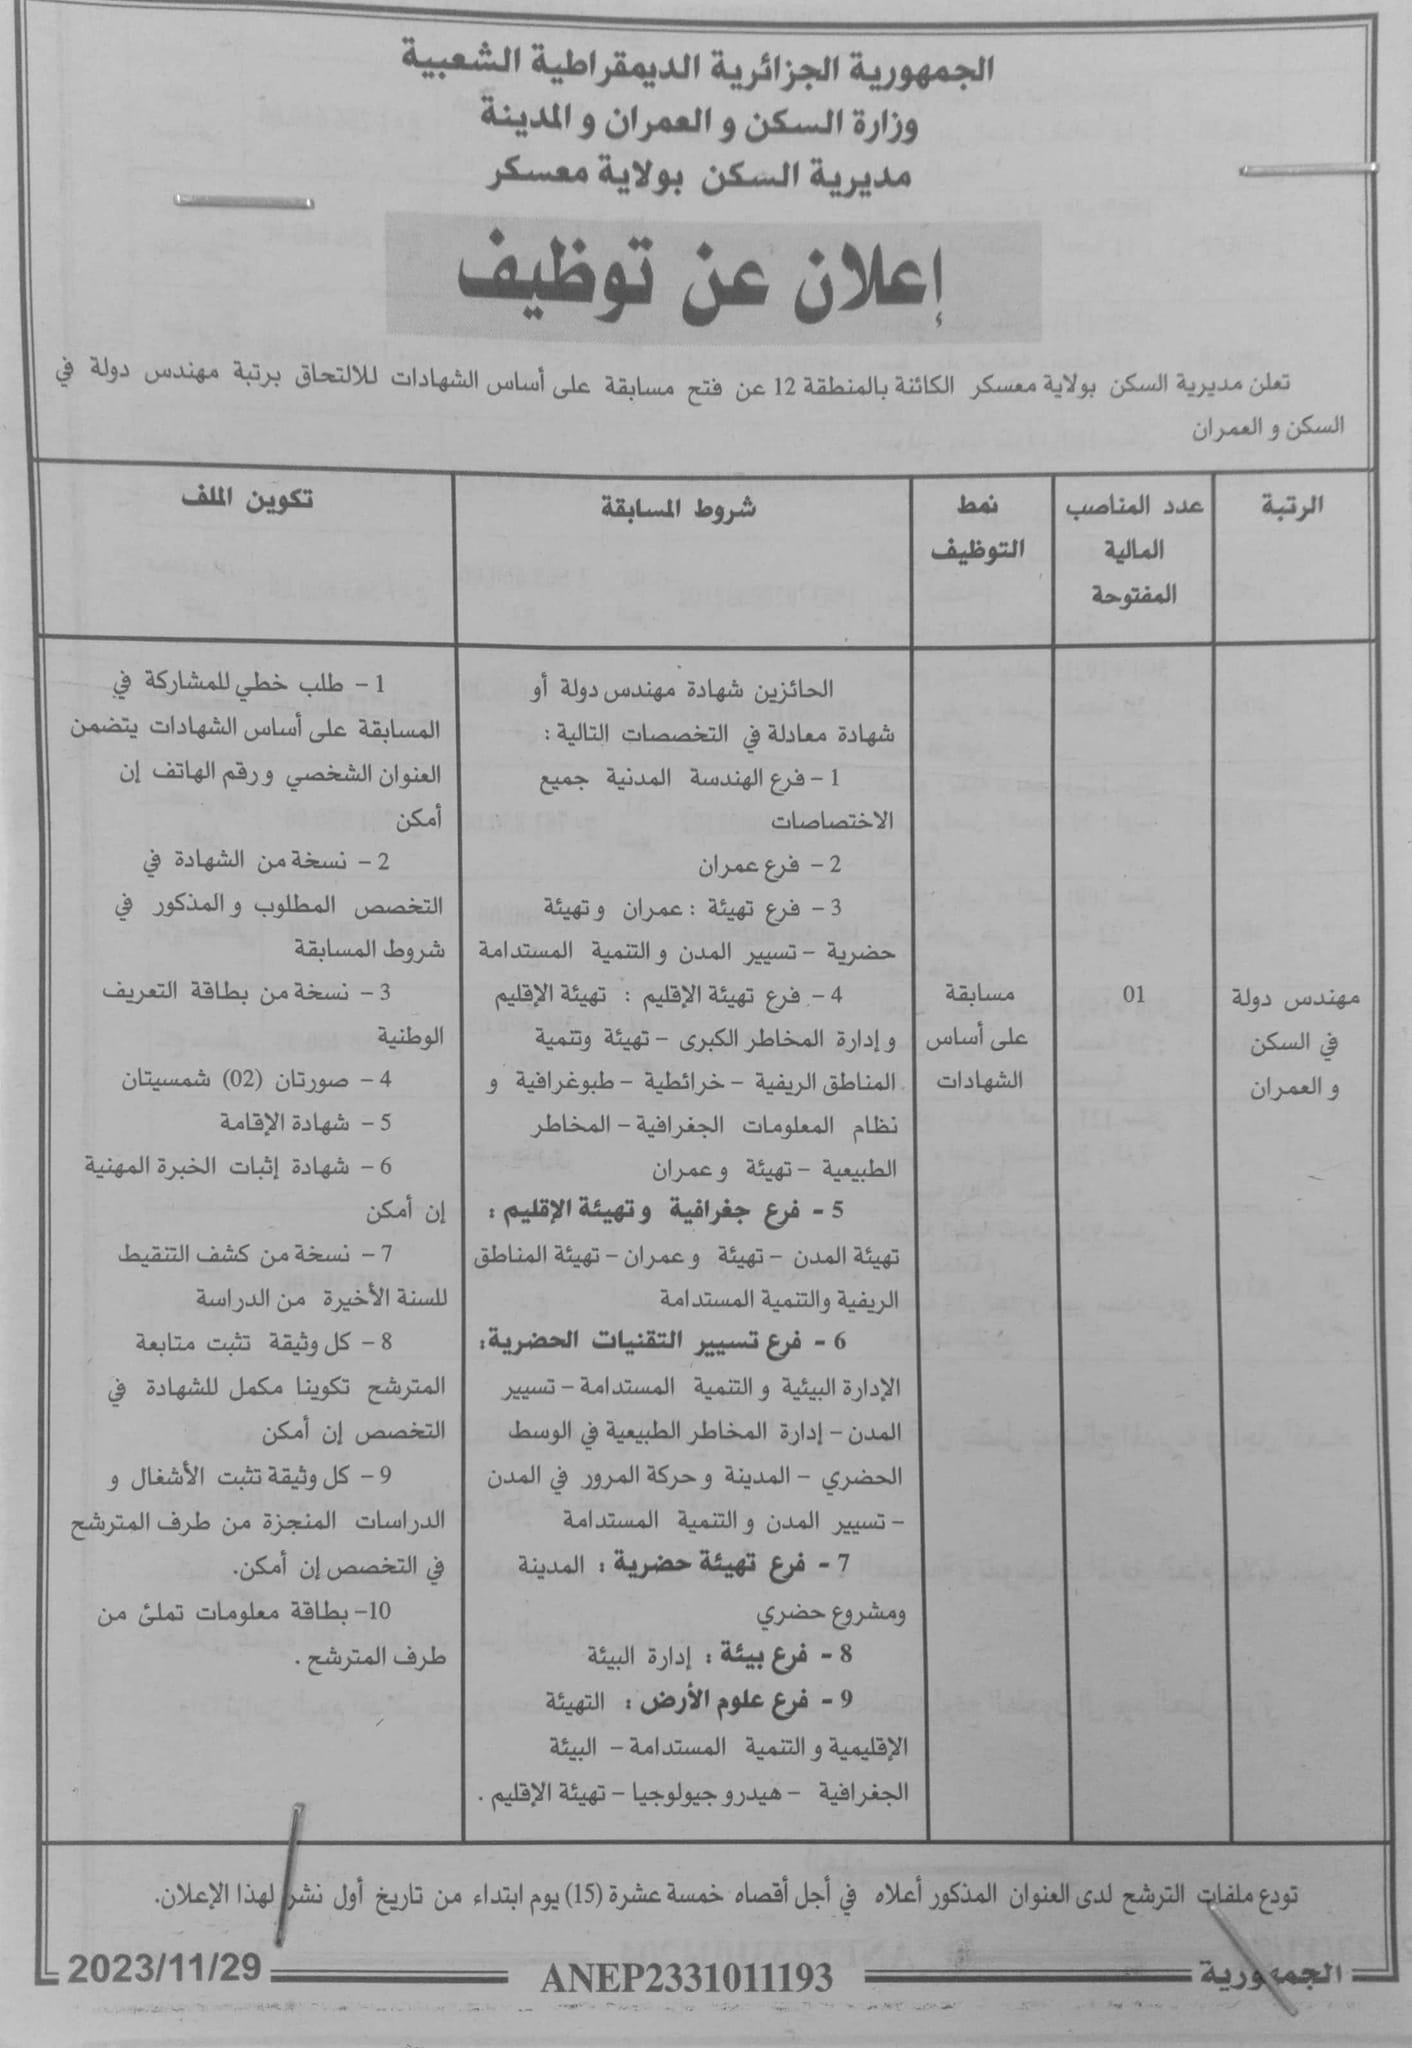 الجمهورية الجزائرية الديمقراطية الشعبية
وزارة السكن و العمران و المدينة
مديرية السكن بولاية معسكر
إعلان عن توظيف
تعلن مديرية السكن بولاية معسكر الكائنة بالمنطقة 12 عن فتح مسابقة على أساس الشهادات للالتحاق برتبة مهندس دولة في
السكن و العمران
الرتبة
عدد المناصب
المالية
المفتوحة
نمط
التوظيف
شروط المسابقة
تكوين الملف
مهندس دولة
في السكن
و العمران
01
مسابقة
على أساس
الشهادات
الحائزين شهادة مهندس دولة أو
شهادة معادلة في التخصصات التالية :
1 – فرع الهندسة المدنية جميع
الاختصاصات
2 – فرع عمران
3 – فرع تهيئة : عمران و تهيئة
حضرية – تسيير المدن و التنمية المستدامة
4 – فرع تهيئة الإقليم : تهيئة الإقليم
و إدارة المخاطر الكبرى – تهيئة وتنمية
المناطق الريفية – خرائطية – طبوغرافية و
نظام المعلومات الجغرافية – المخاطر
الطبيعية – تهيئة و عمران
5 - فرع جغرافية و تهيئة الإقليم :
تهيئة المدن – تهيئة و عمران – تهيئة المناطق
الريفية والتنمية المستدامة
6 - فرع تسيير التقنيات الحضرية:
الإدارة البيئية و التنمية المستدامة – تسيير
المدن – إدارة المخاطر الطبيعية في الوسط
الحضري – المدينة و حركة المرور في المدن
– تسيير المدن و التنمية المستدامة
7 - فرع تهيئة حضرية : المدينة
ومشروع حضري
8 - فرع بيئة : إدارة البيئة
9 - فرع علوم الأرض : التهيئة
الإقليمية و التنمية المستدامة – البيئة
الجغرافية – هيدروجيولوجيا – تهيئة الإقليم .
1 – طلب خطي للمشاركة في
المسابقة على أساس الشهادات يتضمن
العنوان الشخصي و رقم الهاتف إن
أمكن
2 – نسخة من الشهادة في
التخصص المطلوب و المذكور في
شروط المسابقة
3 – نسخة من بطاقة التعريف
الوطنية
4 – صورتان (02) شمسيتان
5 – شهادة الإقامة
6 – شهادة إثبات الخبرة المهنية
إن أمكن
7 – نسخة من كشف التنقيط
للسنة الأخيرة من الدراسة
8 – كل وثيقة تثبت متابعة
المترشح تكوينا مكمل للشهادة في
التخصص إن أمكن
9 – كل وثيقة تثبت الأشغال و
الدراسات المنجزة من طرف المترشح
في التخصص إن أمكن.
10– بطاقة معلومات تملئ من
طرف المترشح .
تودع ملفات الترشح لدى العنوان المذكور أعلاه في أجل أقصاه خمسة عشرة (15) يوم ابتداء من تاريخ أول نشر لهذا الإعلان.
الجمهورية ANEP2331011193 2023/11/29